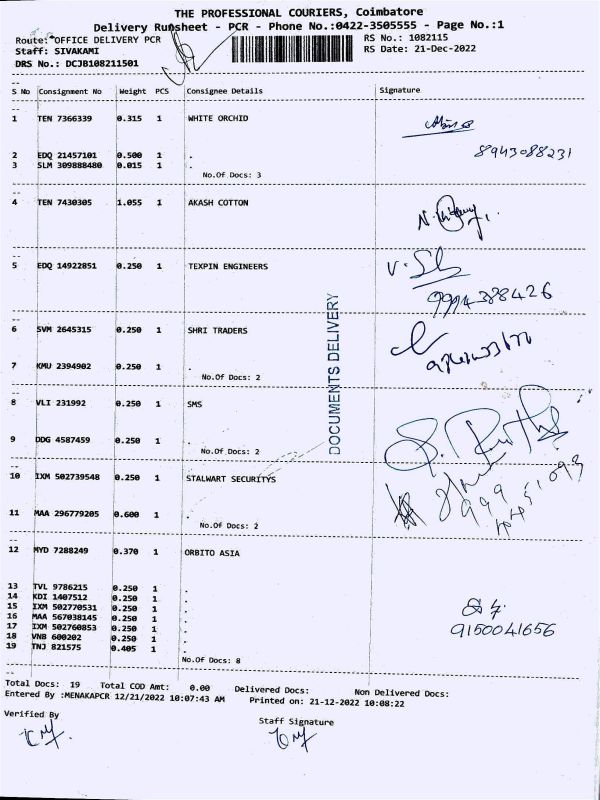 THE PROFESSIONAL COURIERS, Coimbatore
Delivery Runsheet - PCR - Phone No.:0422-3505555 - Page No.:1
Route: OFFICE DELIVERY PCR RS No.: 1082115
Staff: SIVAKAMI RS Date: 21-Dec-2022
DRS No.: DCJB108211501
S No Consignment No Weight PCS Consignee Details Signature
1 TEN 7366339 0.315 1 WHITE ORCHID
8943088231
2 EDQ 21457101 0.500 1 .
3 SLM 309888480 0.015 1 .
No.Of Docs: 3
4 TEN 7430305 1.055 1 AKASH COTTON
5 EDQ 14922851 0.250 1 TEXPIN ENGINEERS
9994388426
6 SVM 2645315 0.250 1 SHRI TRADERS
7 KMU 2394902 0.250 1 .
No.Of Docs: 2
DOCUMENTS DELIVERY
8 VLI 231992 0.250 1 SMS
9 DDG 4587459 0.250 1 .
No.Of Docs: 2
10 IXM 502739548 0.250 1 STALWART SECURITYS
11 MAA 296779205 0.600 1 .
No.Of Docs: 2
12 MYD 7288249 0.370 1 ORBITO ASIA
13 TVL 9786215 0.250 1 .
14 KDI 1407512 0.250 1 .
15 IXM 502770531 0.250 1 .
16 MAA 567038145 0.250 1 .
17 IXM 502760853 0.250 1 .
18 VNB 600202 0.250 1 .
19 TNJ 821575 0.405 1 .
9150041656
No.Of Docs: 8
Total Docs: 19 Total COD Amt: 0.00 Delivered Docs: Non Delivered Docs:
Entered By :MENAKAPCR 12/21/2022 10:07:43 AM Printed on: 21-12-2022 10:08:22
Verified By Staff Signature